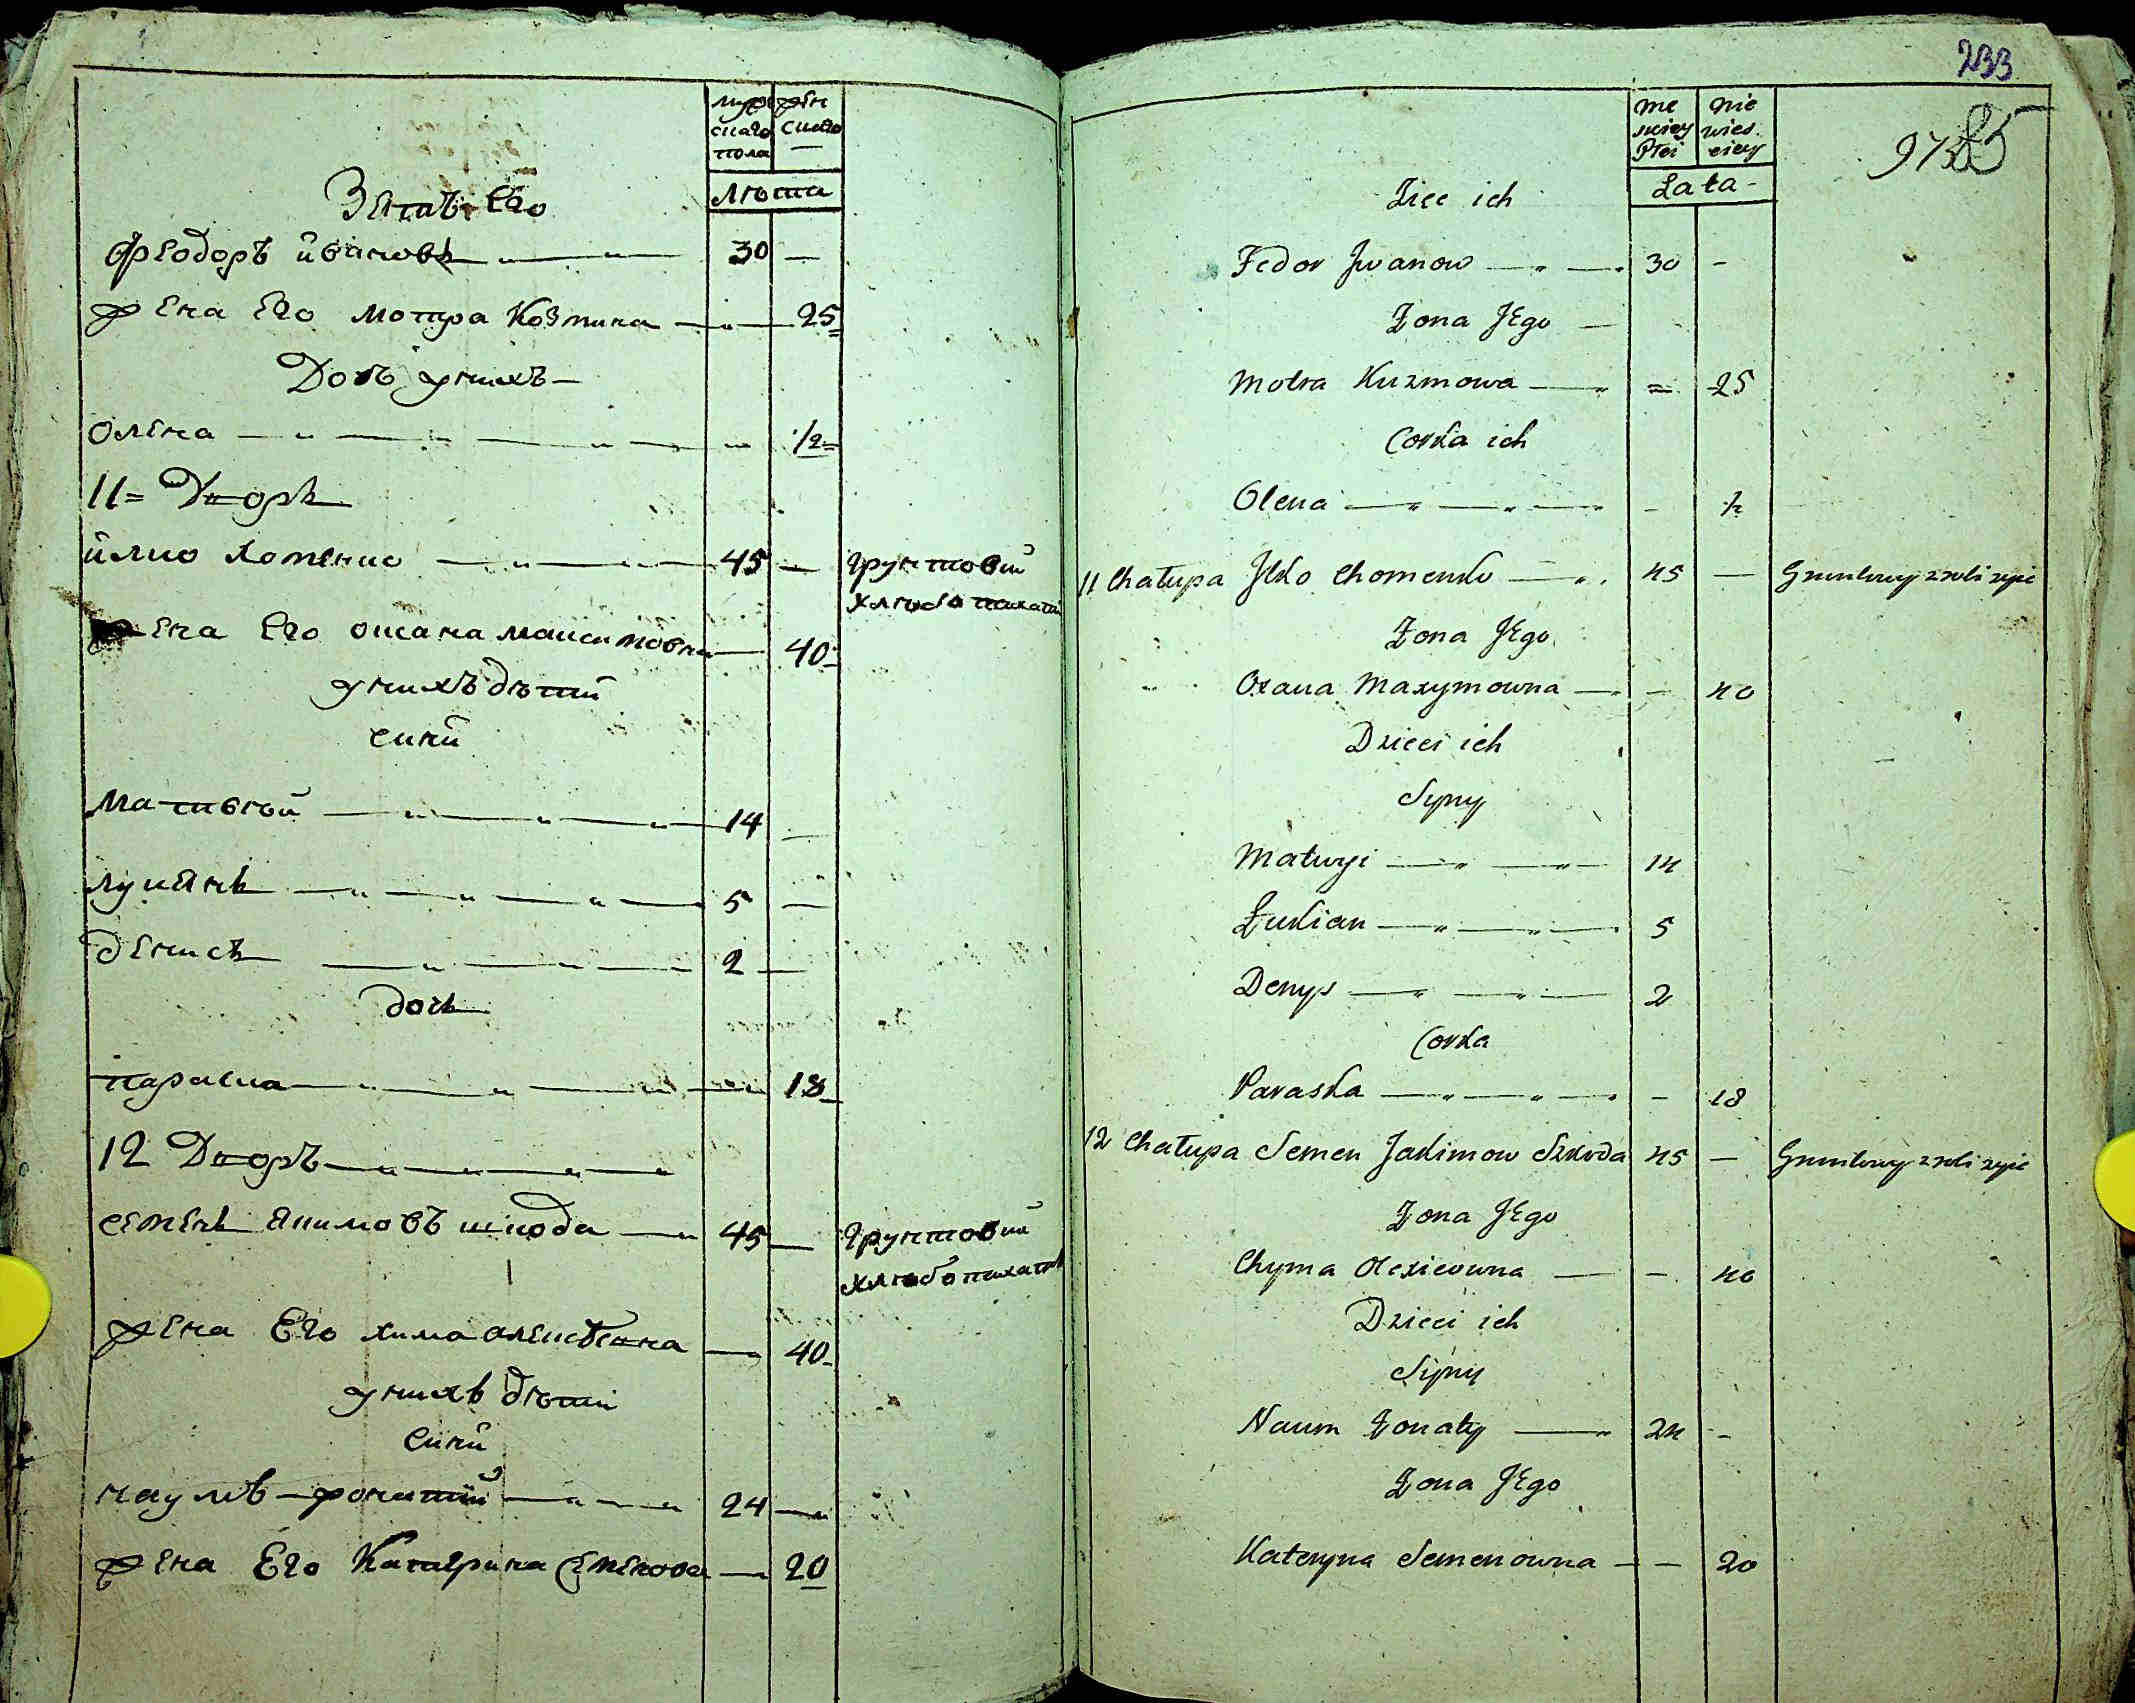 муж ског пола
жен ског
лѣта
Зять Его
Феодоръ ивановъ 30 —
жена Его мотра Козмина — 25
Дочь у нихъ —
олена — 1/2
11 = Дворъ
илко хоменко 45 — грунтовий
хлѣбопахатъ
жена Его оксана максимовна — 40
у нихъ дѣти
сини
матвѣй 14 —
лукянъ 5 —
денисъ 2 —
дочь
параска — 18
12 Дворъ
семенъ якимовъ шкода 45 — грунтовий
хлѣбопахатъ
жена Его хима алексѣевна — 40
у нихъ дѣти
сини
наумъ жонатий 24 —
жена Его Катерина Семенова — 20
233
Me skiey Płci
Nie wies ciey
Lata -
Zięć ich
Fedor Jwanow 30 -
Żona JEgo
Motra Kuzmowa = 25
Corka ich
Olena - 1/2
11 Chałupa Jlko Chomenko 45 — Gruntowy z roli żyie
Żona JEgo
Oxana Maxymowna - 40
Dzieci ich
Syny
Matwyi 14
Łukian 5
Denys 2
Corka
Paraska - 18
12 Chałupa Semen Jakimow Szkoda 45 — Gruntowy z roli żyie
Żona JEgo
Chyma Olexieowna - 40
Dzieci ich
Syny
Naum Żonaty 24 -
Żona JEgo
Kateryna Semenowna — 20